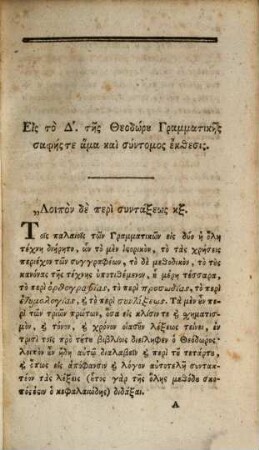 Εἰς τὸ Δ΄. τῆς Θεοδώρȣ Γραμματικῆς
σαφής τε ἅμα καὶ σύντομος ἔκθεσις.
„Λοιπὸν δὲ περὶ συντάξεως κξ.
Τοῖς παλαιοῖς τῶν Γραμματικῶν εἰς δύο ἡ ὅλη
τέχνη διῄρητο, ὧν τὸ μὲν ἱςορικὸν, τὸ τὰς χρήσεις
περιέχον τῶν συγγραφέων, τὸ δὲ μεθοδικὸν, τὸ τȣς
κανόνας τῆς τέχνης ὑποτιθέμενον, ȣ̃ μέρη τέσσαρα,
τὸ περὶ ὀρθογραφίας, τὸ περὶ προσωδίας, τὸ περὶ
ἐτυμολογίας, ἢ τὸ περὶ συντάξεως. Τὰ μὲν ȣ̃ν πε-
ρὶ τῶν τριῶν πρώτων, ὅσα εἰς κλίσιν τε ἢ χηματισ-
μὸν, ἢ τόνον, ἢ χρόνον ȣ̓σίαν λέξεως τείνει, ἐν
τρισὶ τοῖς πρὸ τȣ́τȣ βιβλίοις διείληφεν ὁ Θεόδωρος·
λοιπὸν ȣ̃ν ἤδη αὐτῷ διαλαβεῖν ἢ περὶ τȣ̃ τετάρτȣ,
ἢ ὅπως εἰς ἀπόφανσιν ἢ λόγον αὐτοτελῆ συντακ-
τέον τὰς λέξεις (ȣ̃τος γὰρ τῆς ὅλης μεθόδȣ σκο-
πὸς ὁ κεφαλαιώδης) διδάξαι.
Α